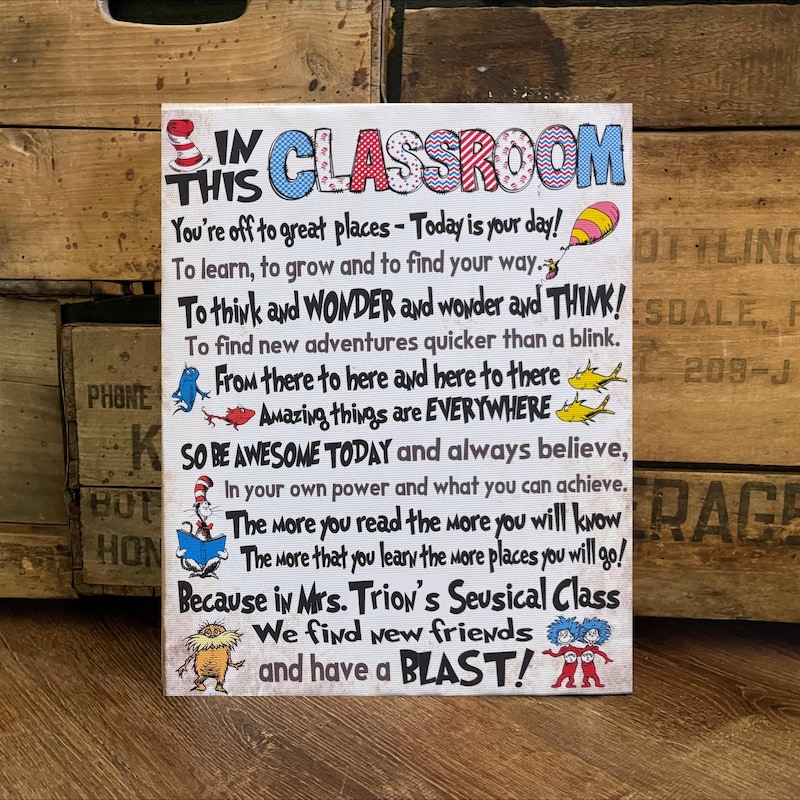 IN
THIS CLASSROOM
You're off to great places - Today is your day!
To learn, to grow and to find your way.
To think and WONDER and wonder and THINK!
To find new adventures quicker than a blink.
From there to here and here to there
Amazing things are EVERYWHERE
SO BE AWESOME TODAY and always believe,
In your own power and what you can achieve.
The more you read the more you will know
The more that you learn the more places you will go!
Because in Mrs. Trion's Seusical Class
We find new friends
and have a BLAST!
PHONE
K
BOT
HON
OTTLING
ESDALE, P
209-J
ERAGE